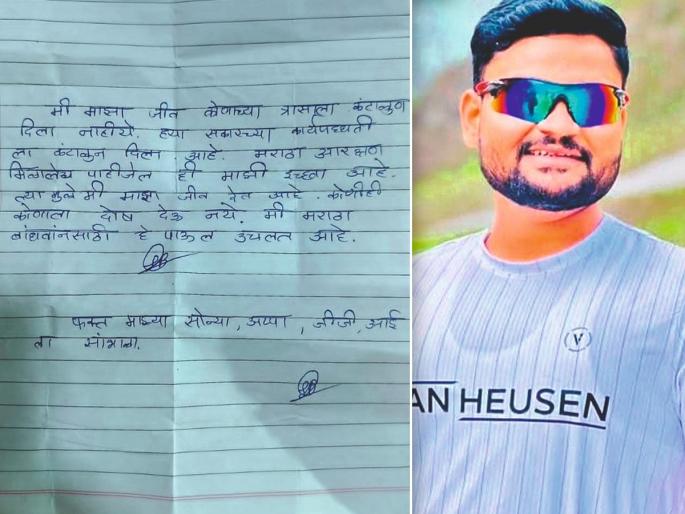 मी माझा जीव कोणाच्या त्रासाला कंटाळुन
दिला नाहीये. ह्या सरकारच्या कार्यपध्दती
ला कंटाळुन दिला आहे. मराठा आरक्षण
मिळालेच पाहीजेल ही माझी इच्छा आहे.
त्या मुळे मी माझा जीव देत आहे. कोणीही
कोणाला दोष देऊ नये. मी मराठा
बांधवांनसाठी हे पाऊल उचलत आहे.
फक्त माझ्या सोन्या, अप्पा, जीजी, आई
ला सांभाळा.
V
AN HEUSEN